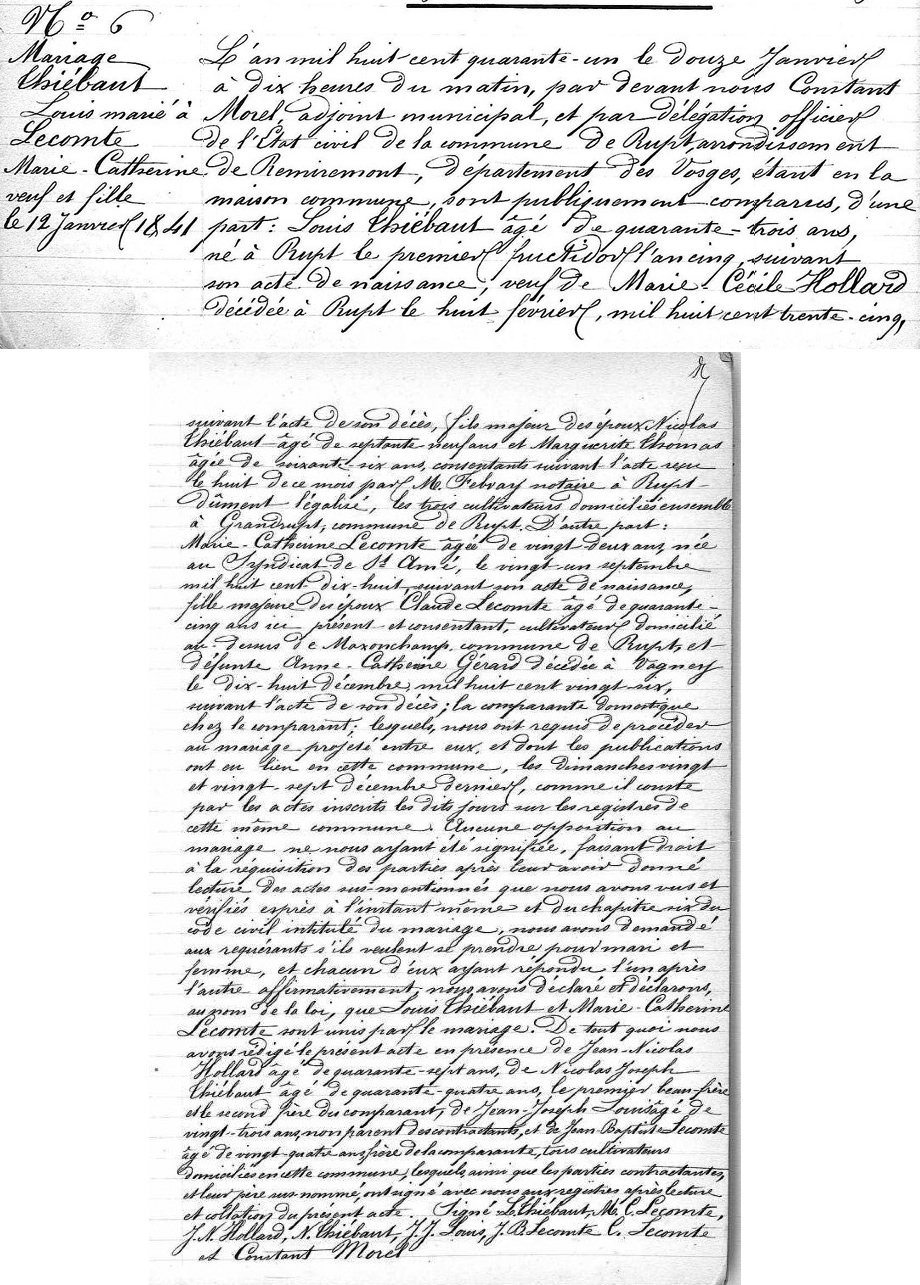 N.o 6
Mariage
Thiébaut
Louis marié à
Lecomte
Marie-Catherine
veuf et fille
le 12 Janvier 1841
L'an mil huit cent quarante-un le douze Janvier
à dix heures du matin, par devant nous Constant
Morel, adjoint municipal, et par délégation officier
de l'État civil de la commune de Rupt, arrondissement
de Remiremont, département des Vosges, étant en la
maison commune, sont publiquement comparus, d'une
part : Louis Thiébaut âgé de quarante-trois ans,
né à Rupt le premier fructidor l'an cinq, suivant
son acte de naissance, veuf de Marie-Cécile Hollard
décédée à Rupt le huit février, mil huit cent trente-cinq,
suivant l'acte de son décès, fils majeur des époux Nicolas
Thiébaut âgé de septante neuf ans et Marguerite Thomas
âgée de soixante-six ans, consentants suivant l'acte reçu
le huit de ce mois par M. Febvay notaire à Rupt
dûment légalisé, les trois cultivateurs domiciliés ensemble
à Grandrupt, commune de Rupt. D'autre part :
Marie-Catherine Lecomte âgée de vingt-deux ans, née
au Syndicat de St Amé, le vingt-un septembre
mil huit cent dix-huit, suivant son acte de naissance,
fille majeure des époux Claude Lecomte âgé de quarante-
cinq ans ici présent et consentant, cultivateur domicilié
au-dessus de Maxonchamp, commune de Rupt, et
défunte Anne-Catherine Gérard décédée à Vagney
le dix-huit décembre, mil huit cent vingt-six,
suivant l'acte de son décès ; la comparante domestique
chez le comparant ; lesquels, nous ont requis de procéder
au mariage projeté entre eux, et dont les publications
ont eu lieu en cette commune, les dimanches vingt
et vingt-sept décembre dernier, comme il conste
par les actes inscrits les dits jours sur les registres de
cette même commune. Aucune opposition au
mariage ne nous ayant été signifiée, faisant droit
à la réquisition des parties après leur avoir donné
lecture des actes sus-mentionnés que nous avons vus et
vérifiés exprès à l'instant même et du chapitre six du
code civil intitulé du mariage, nous avons demandé
aux requérants s'ils veulent se prendre pour mari et
femme, et chacun d'eux ayant répondu l'un après
l'autre affirmativement, nous avons déclaré et déclarons,
au nom de la loi, que Louis Thiébaut et Marie-Catherine
Lecomte sont unis par le mariage. De tout quoi nous
avons rédigé le présent acte en présence de Jean-Nicolas
Hollard âgé de quarante-sept ans, de Nicolas Joseph
Thiébaut âgé de quarante-quatre ans, le premier beau-frère
et le second frère du comparant, de Jean-Joseph Louis âgé de
vingt-trois ans, non parent des contractants, et de Jean-Baptiste Lecomte
âgé de vingt-quatre ans frère de la comparante, tous cultivateurs
domiciliés en cette commune, lesquels, ainsi que les parties contractantes,
et leur père sus-nommé, ont signé avec nous aux registres après lecture
et collation du présent acte. Signé L. Thiébaut, M. C. Lecomte,
J. N. Hollard, N. Thiébaut, J. J. Louis, J. B. Lecomte C. Lecomte
et Constant Morel